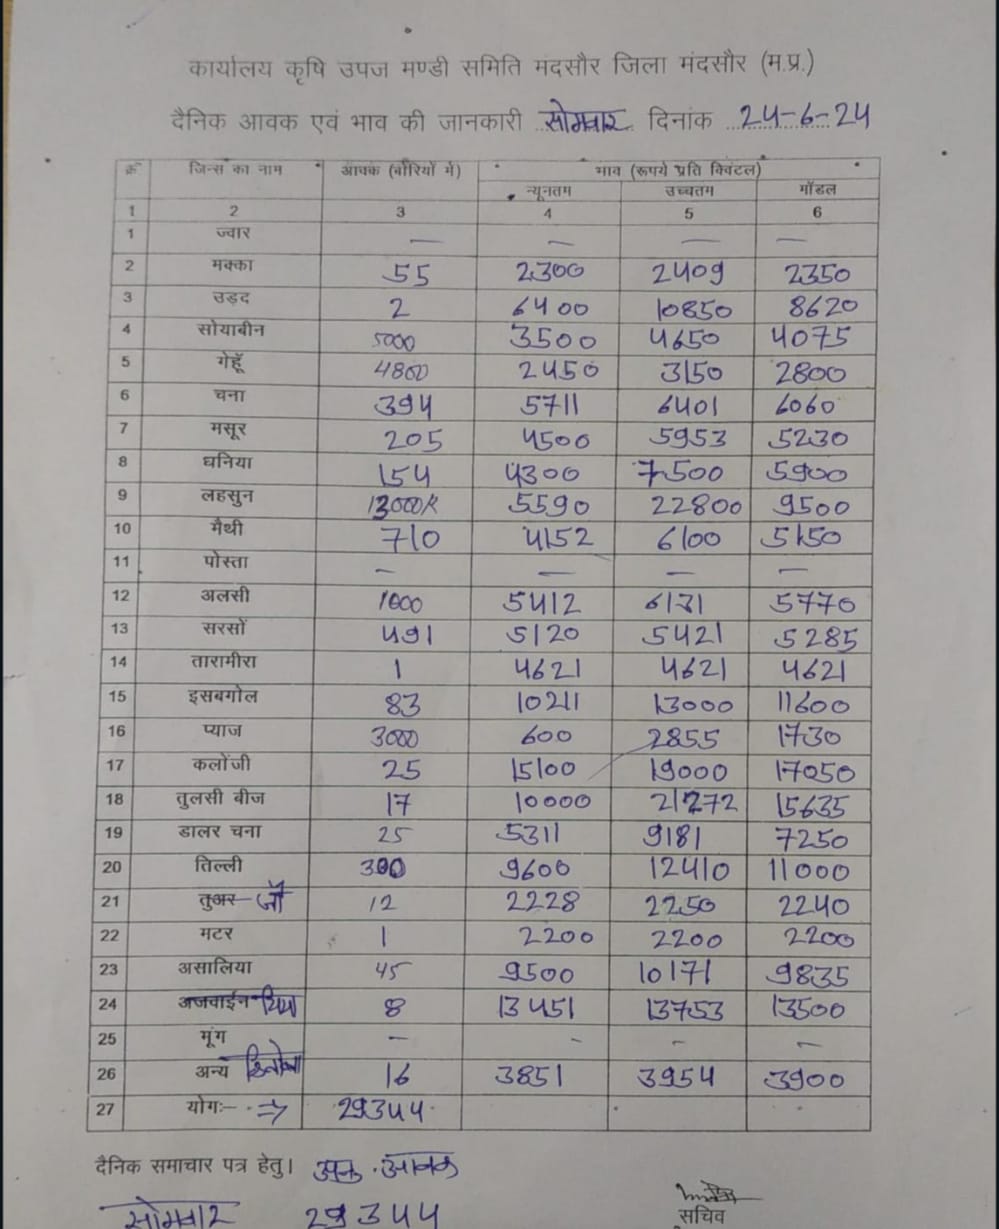 कार्यालय कृषि उपज मण्डी समिति मंदसौर जिला मंदसौर (म.प्र.)
दैनिक आवक एवं भाव की जानकारी सोमवार दिनांक 24-6-24
क्रं जिन्स का नाम आवक (बोरियों में) भाव (रूपये प्रति क्विंटल)
न्यूनतम उच्चतम मॉडल
1 2 3 4 5 6
1 ज्वार — — — —
2 मक्का 55 2300 2409 2350
3 उड़द 2 6400 10850 8620
4 सोयाबीन 5000 3500 4650 4075
5 गेहूँ 4800 2450 3150 2800
6 चना 394 5711 6401 6060
7 मसूर 205 4500 5953 5230
8 धनिया 154 4300 7500 5900
9 लहसुन 13000K 5590 22800 9500
10 मैथी 710 4152 6100 5150
11 पोस्ता — — — —
12 अलसी 1000 5412 6171 5770
13 सरसों 491 5120 5421 5285
14 तारामीरा 1 4621 4621 4621
15 इसबगोल 83 10211 13000 11600
16 प्याज 3000 600 2855 1730
17 कलोंजी 25 15100 19000 17050
18 तुलसी बीज 17 10000 21272 15635
19 डालर चना 25 5311 9181 7250
20 तिल्ली 300 9600 12410 11000
21 तुअर जौ 12 2228 2250 2240
22 मटर 1 2200 2200 2200
23 असालिया 45 9500 10171 9835
24 अजवाईन 8 13451 13753 13500
25 मूंग — - - —
26 अन्य 16 3851 3954 3900
27 योगः- ⇒ 29344
दैनिक समाचार पत्र हेतु। आवक
सोमवार 29344
सचिव